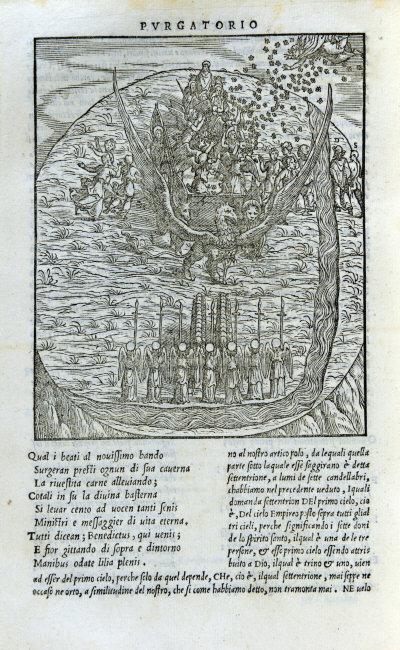 PVRGATORIO
Qual i beati al nouissimo bando
Surgeran presti ognun di sua cauerna
La riuestita carne alleuiando;
Cotali in su la diuina basterna
Si leuar cento ad uocen tanti senis
Ministri e messaggier di uita eterna.
Tutti dicean; Benedictus, qui uenis;
E fior gittando di sopra e dintorno
Manibus o date lilia plenis.
no al nostro artico polo, da lequali quella
parte sotto laquale esse saggirano è detta
settentrione, a lumi de sette candellabri,
chabbiamo nel precedente ueduto, Iquali
domanda settentrion DEl primo cielo, cio
è, Del cielo Empireo posto sopra tutti glial
tri cieli, perche significando i sette doni
de lo spirito santo, ilqual è una de le tre
persone, & esse primo cielo essendo attri
buito a Dio, ilqual è trino & uno, uien
ad esser del primo cielo, perche solo da quel depende, CHe, cio è, ilqual settentrione, mai seppe ne
occaso ne orto, a similitudine del nostro, che si come habbiamo detto, non tramonta mai. NE uelo